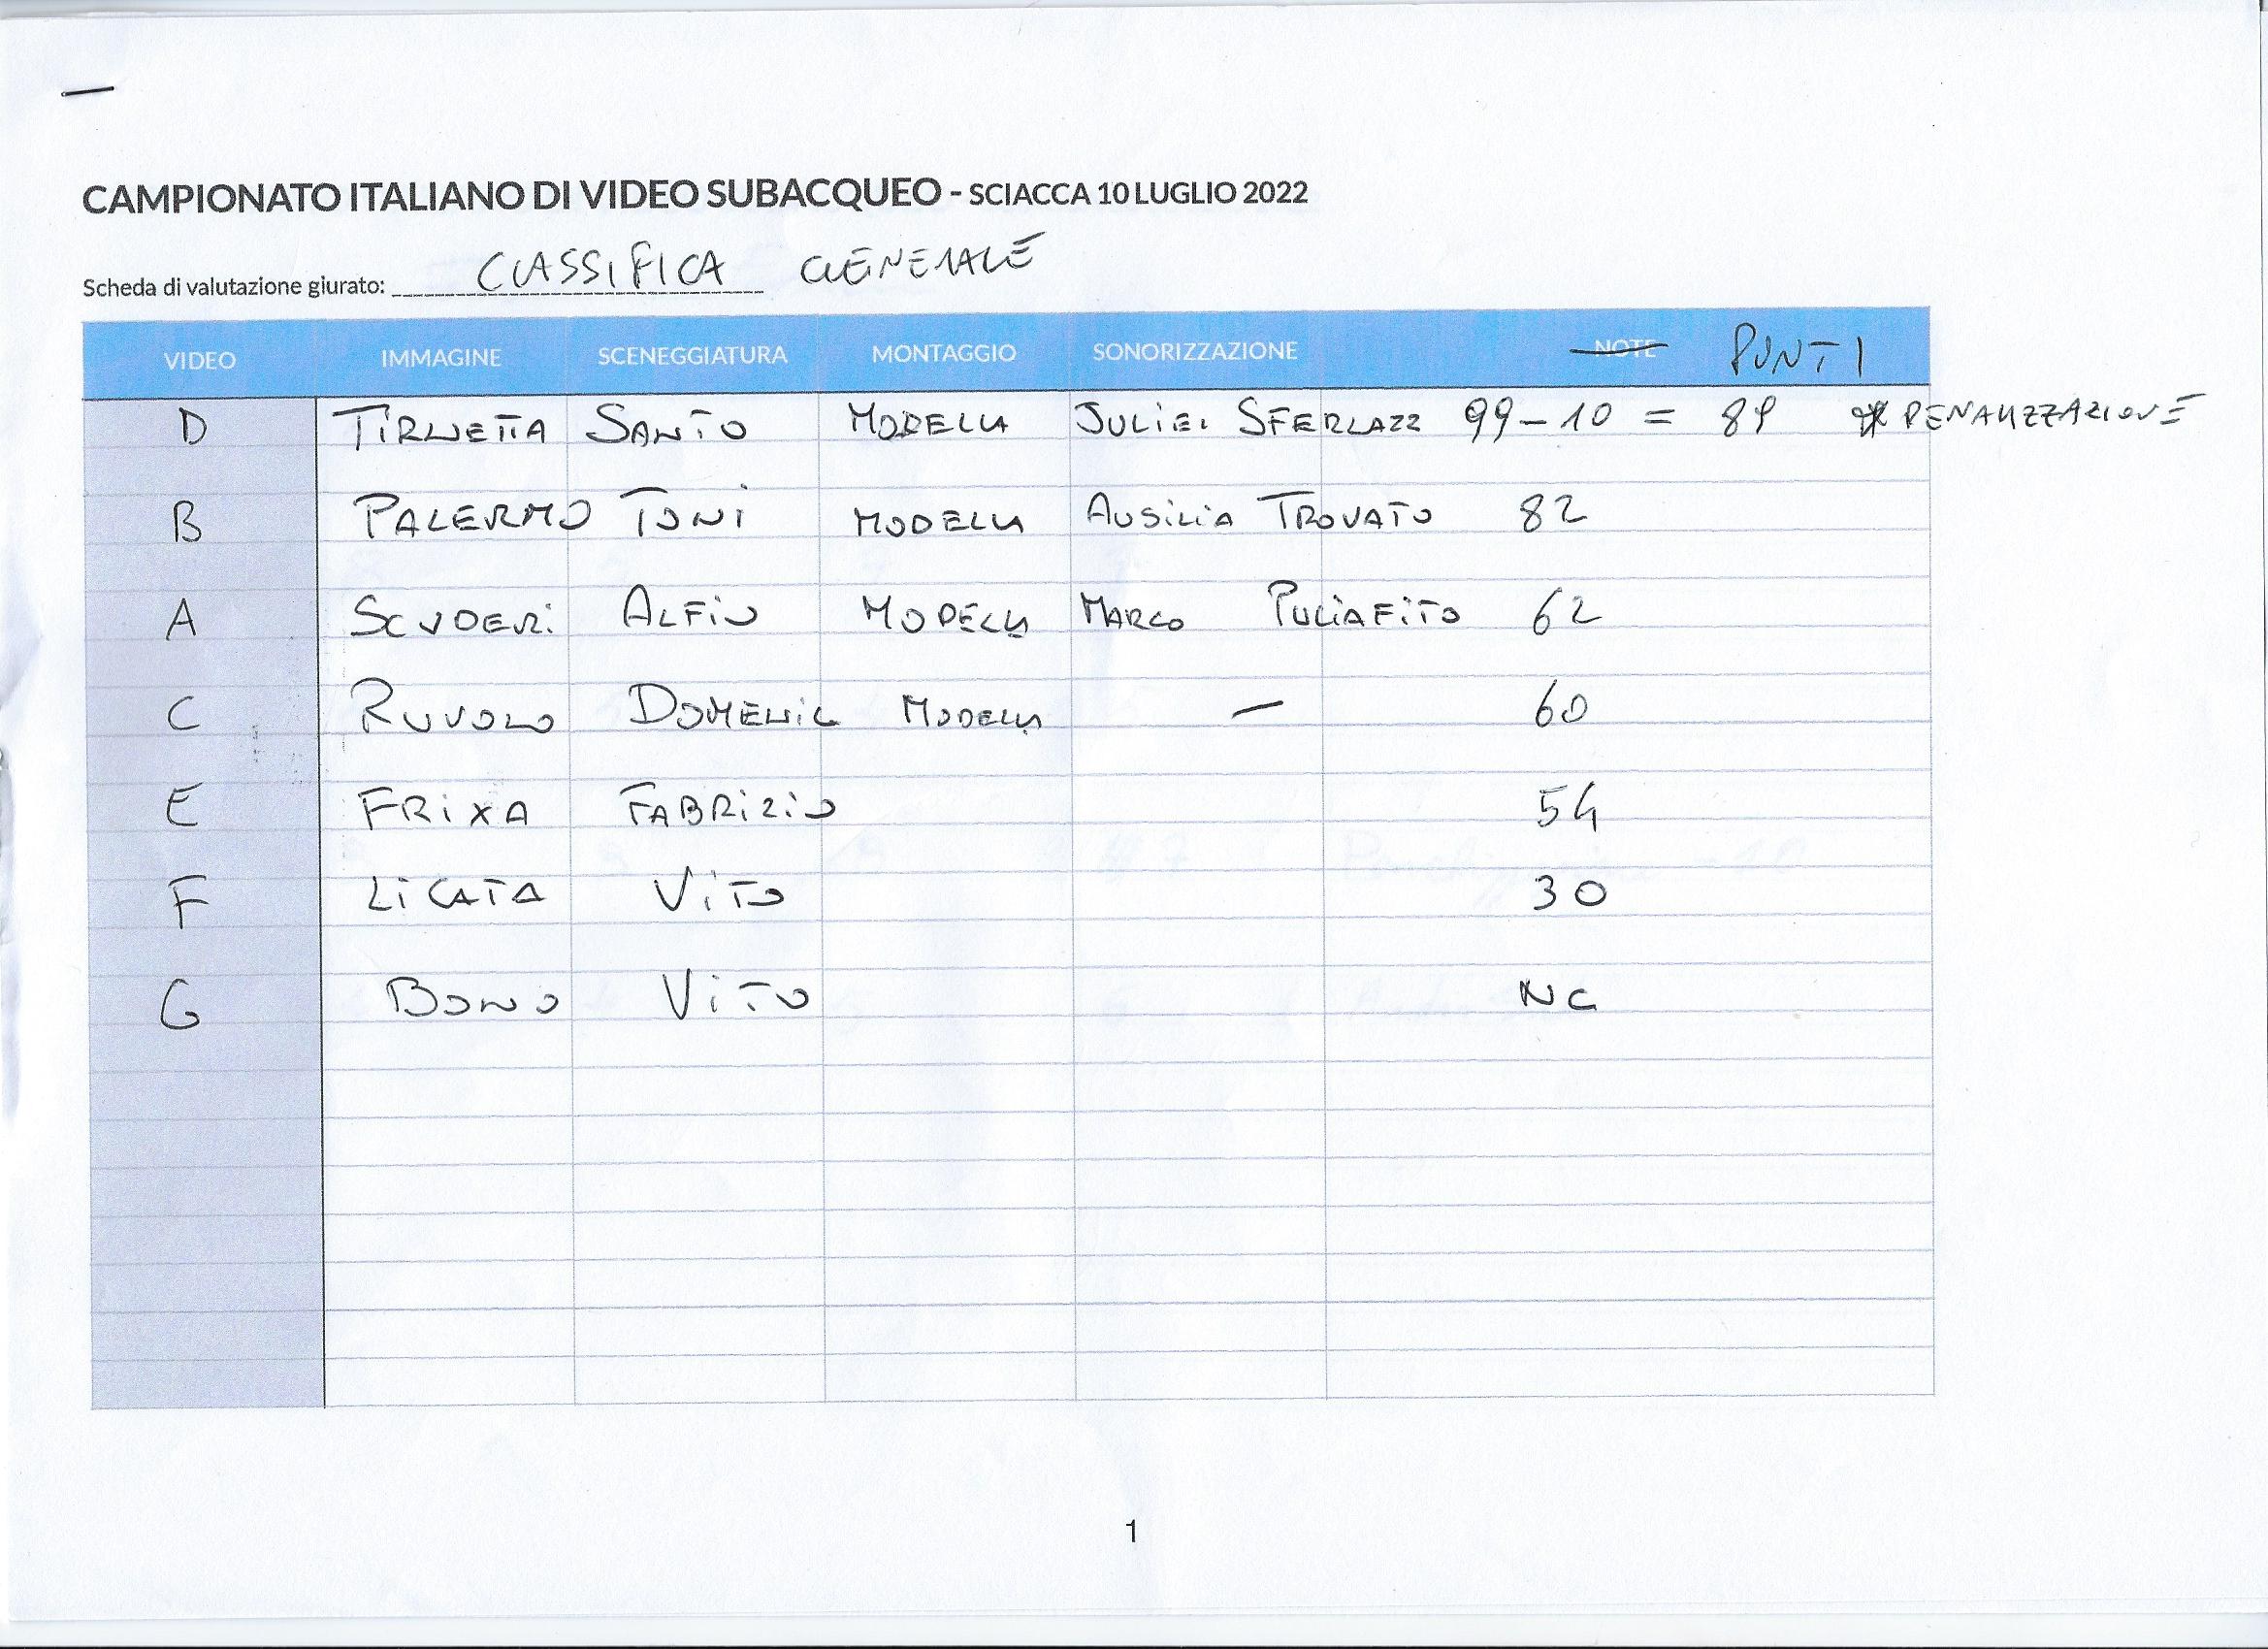 CAMPIONATO ITALIANO DI VIDEO SUBACQUEO - SCIACCA 10 LUGLIO 2022
Scheda di valutazione giurato: CLASSIFICA GENERALE
VIDEO IMMAGINE SCENEGGIATURA MONTAGGIO SONORIZZAZIONE NOTE PUNTI
D TIRNETTA SANTO MODELLA SFERLAZZ 99-10 = 89 * PENALIZZAZIONE
B PALERMO TONI MODELLA AUSILIA TROVATO 82
A SCUDERI ALFIO MODELLA MARCO PULIAFITO 62
C RUVOLO DOMENIC MODELLA — 60
E FRIXA FABRIZIO 54
F LICATA VITO 30
G BONO VITO NC
1